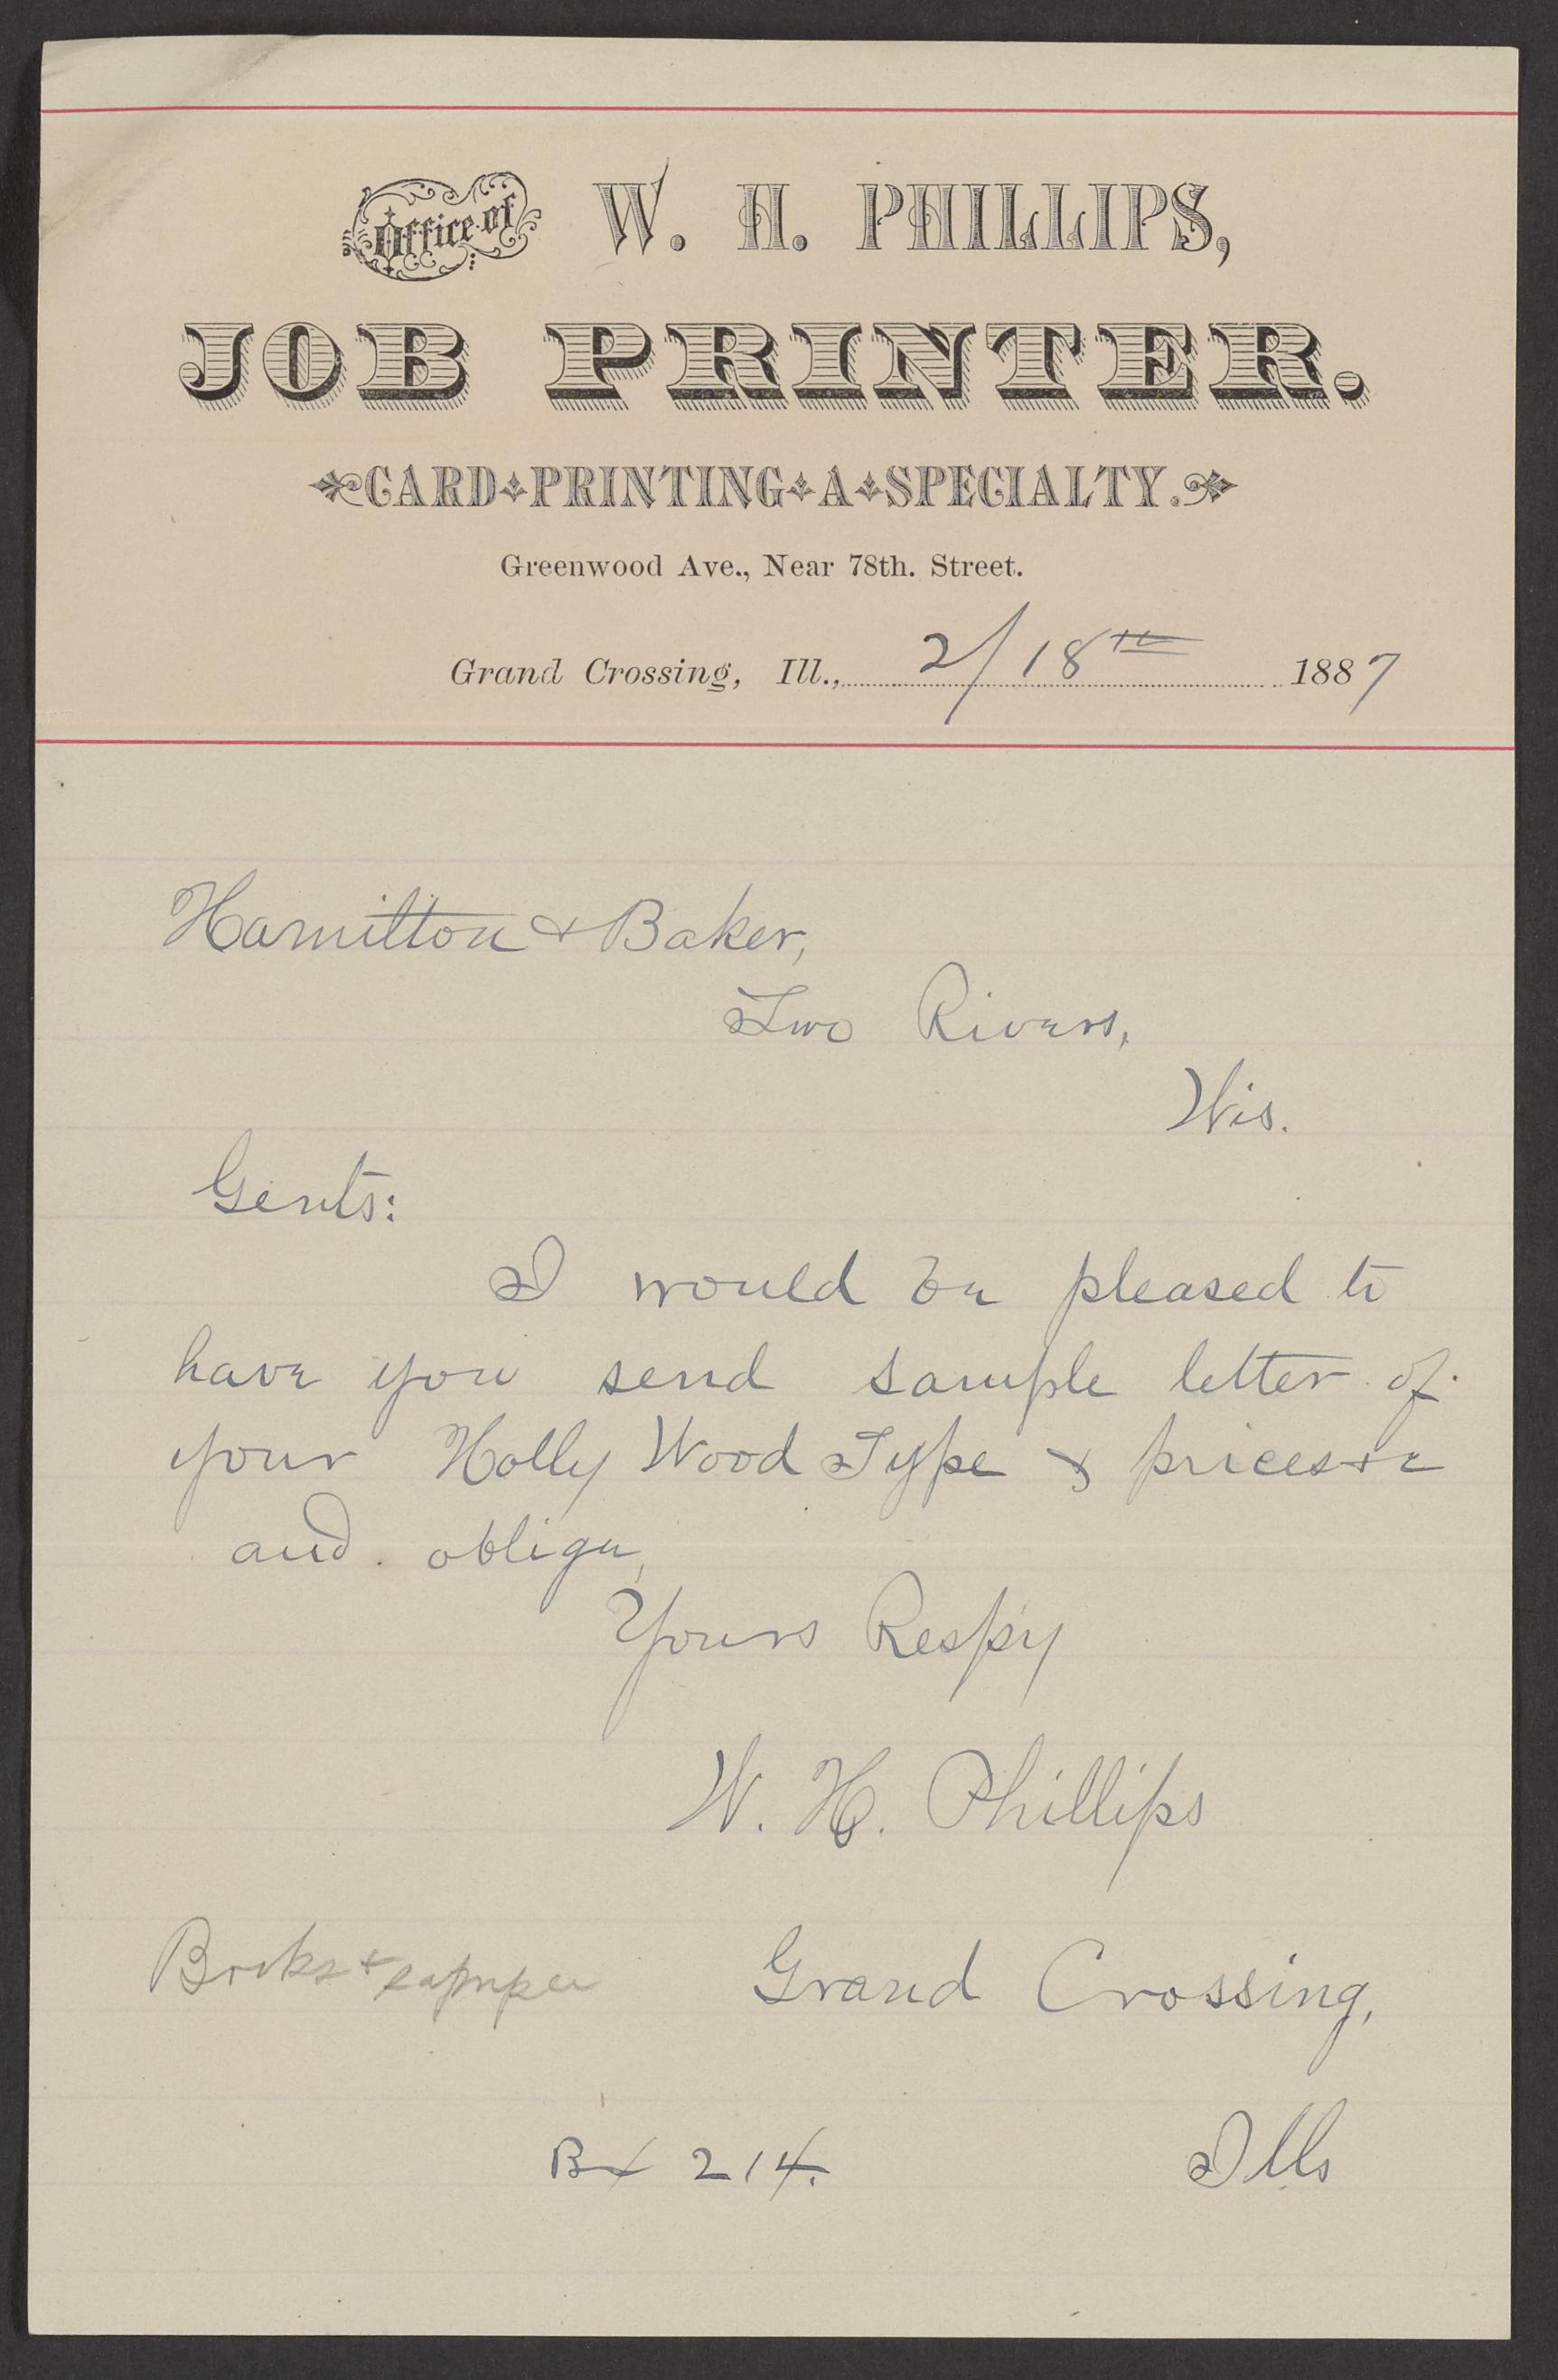 Office of W. H. PHILLIPS,
JOB PRINTER.
CARD PRINTING A SPECIALTY.
Greenwood Ave., Near 78th. Street.
Grand Crossing, Ill., 2/18th 1887
Hamilton & Baker,
Two Rivers,
Wis.
Gents:
I would be pleased to
have you send sample letter of
your Holly Wood Type & prices &c
and oblige,
Yours Respy
W. H. Phillips
Books &
Grand Crossing,
Bx 214.
Ills